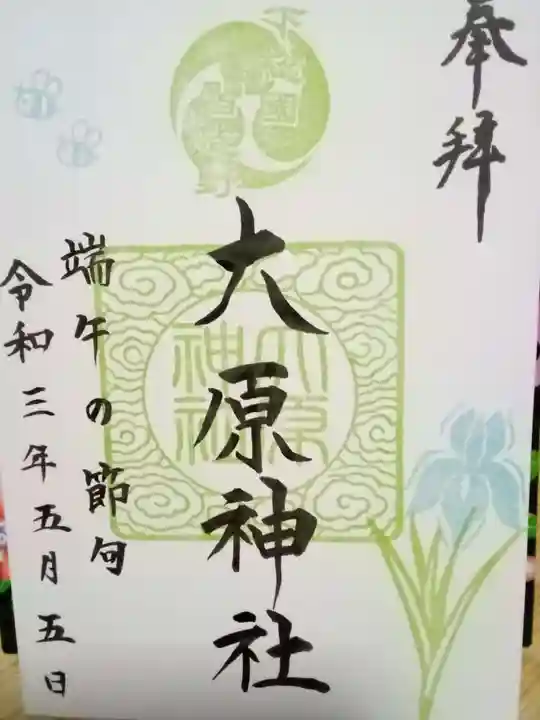 奉拝
大原神社
大原
神社
端午の節句
令和三年五月五日